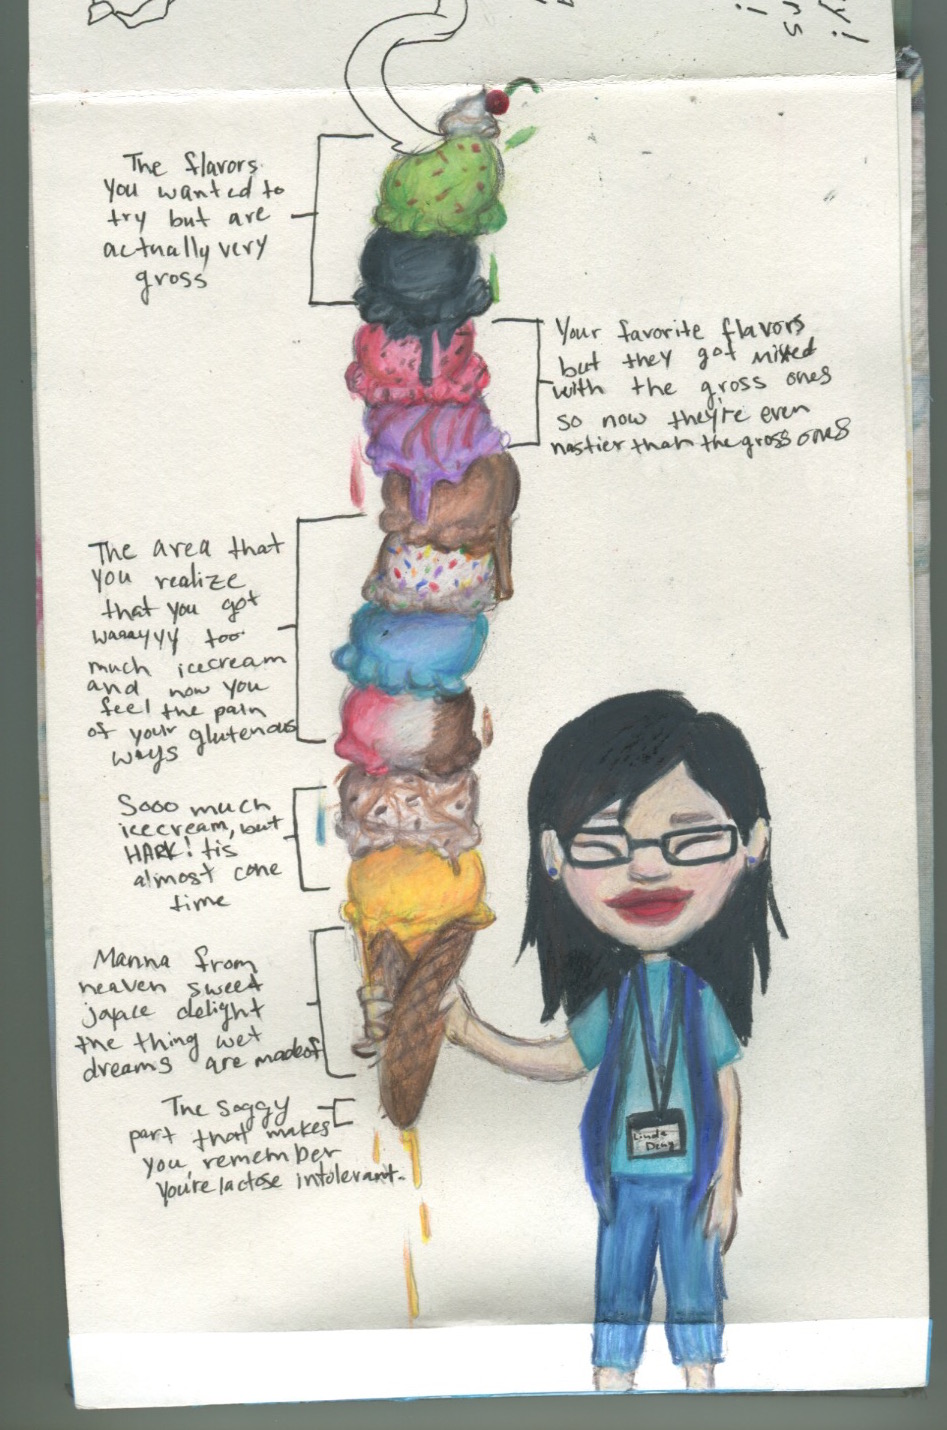 y!
rs
!
The flavors
you wanted to
try but are
actually very
gross
Your favorite flavors
but they got mixed
with the gross ones
so now they're even
nastier than the gross ones
The area that
you realize
that you got
waaayyy too
much icecream
and now you
feel the pain
of your glutenous
ways
Sooo much
icecream, but
HARK! tis
almost cone
time
Manna from
heaven sweet
delight
the thing wet
dreams are made of
The soggy
part that makes
you remember
you're lactose intolerant.
Linda